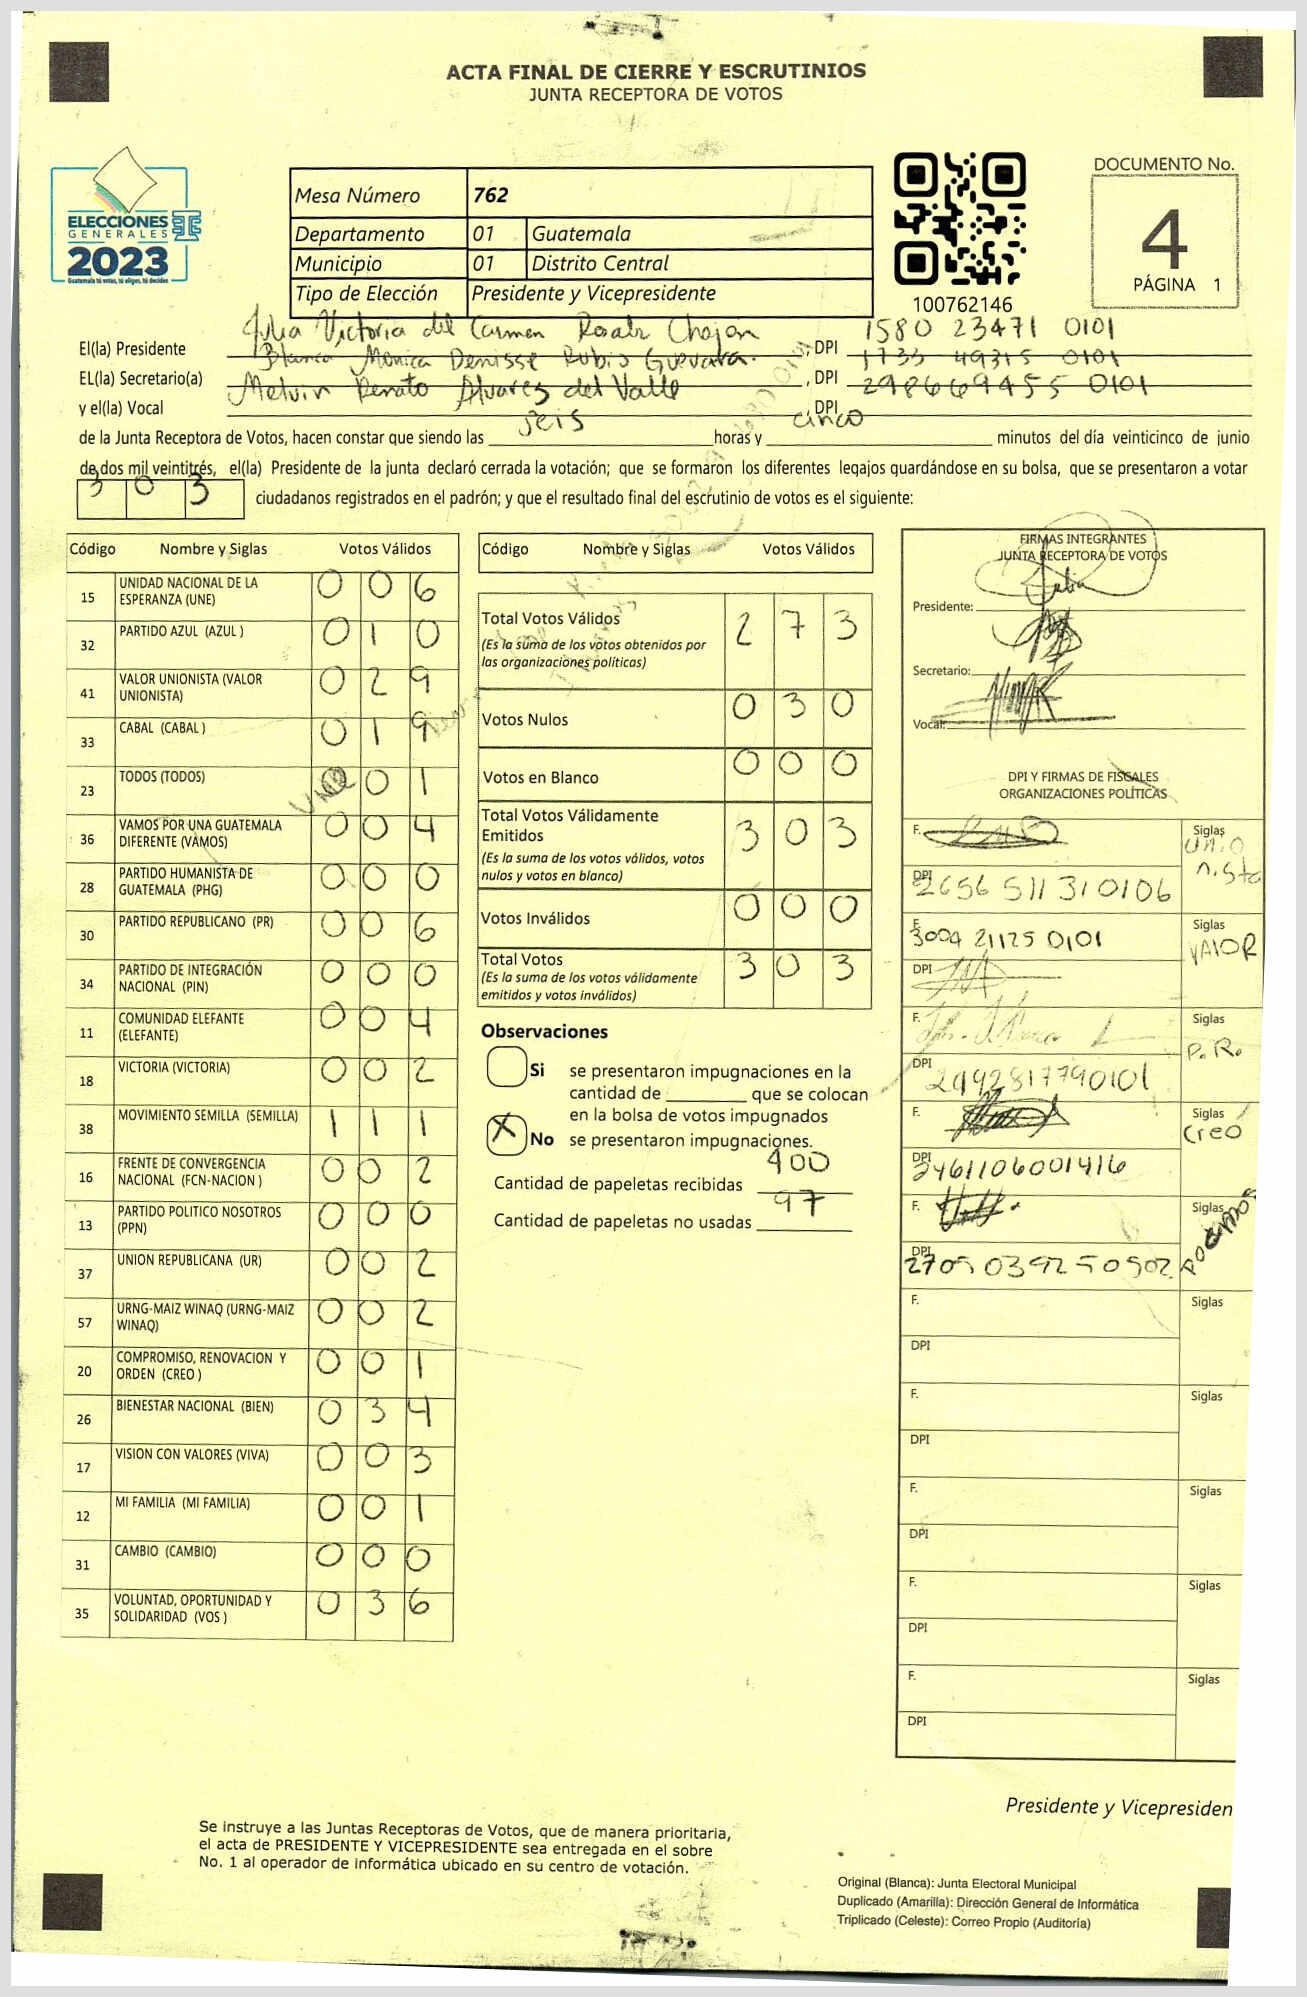 ACTA FINAL DE CIERRE Y ESCRUTINIOS
JUNTA RECEPTORA DE VOTOS
ELECCIONES
GENERALES
2023
Guatemala tú votas, tú eliges, tú decides
Mesa Número 762
Departamento 01 Guatemala
Municipio 01 Distrito Central
Tipo de Elección Presidente y Vicepresidente
100762146
DOCUMENTO No.
4
PÁGINA 1
El(la) Presidente Julia Victoria del Carmen Rosales Chajon , DPI 1580 23471 0101
EL(la) Secretario(a) Blanca Monica Denisse Rubio Guevara. , DPI 1733 49315 0101
y el(la) Vocal Melvin Renato Alvares del Valle , DPI 298669455 0101
de la Junta Receptora de Votos, hacen constar que siendo las seis horas y cinco minutos del día veinticinco de junio
de dos mil veintitrés, el(la) Presidente de la junta declaró cerrada la votación; que se formaron los diferentes legajos guardándose en su bolsa, que se presentaron a votar
3 0 3 ciudadanos registrados en el padrón; y que el resultado final del escrutinio de votos es el siguiente:
Código Nombre y Siglas Votos Válidos
15 UNIDAD NACIONAL DE LA ESPERANZA (UNE) 0 0 6
32 PARTIDO AZUL (AZUL ) 0 1 0
41 VALOR UNIONISTA (VALOR UNIONISTA) 0 2 9
33 CABAL (CABAL ) 0 1 9
23 TODOS (TODOS) 0 0 1
36 VAMOS POR UNA GUATEMALA DIFERENTE (VAMOS) 0 0 4
28 PARTIDO HUMANISTA DE GUATEMALA (PHG) 0 0 0
30 PARTIDO REPUBLICANO (PR) 0 0 6
34 PARTIDO DE INTEGRACIÓN NACIONAL (PIN) 0 0 0
11 COMUNIDAD ELEFANTE (ELEFANTE) 0 0 4
18 VICTORIA (VICTORIA) 0 0 2
38 MOVIMIENTO SEMILLA (SEMILLA) 1 1 1
16 FRENTE DE CONVERGENCIA NACIONAL (FCN-NACION ) 0 0 2
13 PARTIDO POLITICO NOSOTROS (PPN) 0 0 0
37 UNION REPUBLICANA (UR) 0 0 2
57 URNG-MAIZ WINAQ (URNG-MAIZ WINAQ) 0 0 2
20 COMPROMISO, RENOVACION Y ORDEN (CREO ) 0 0 1
26 BIENESTAR NACIONAL (BIEN) 0 3 4
17 VISION CON VALORES (VIVA) 0 0 3
12 MI FAMILIA (MI FAMILIA) 0 0 1
31 CAMBIO (CAMBIO) 0 0 0
35 VOLUNTAD, OPORTUNIDAD Y SOLIDARIDAD (VOS ) 0 3 6
Código Nombre y Siglas Votos Válidos
Total Votos Válidos 2 7 3
(Es la suma de los votos obtenidos por
las organizaciones políticas)
Votos Nulos 0 3 0
Votos en Blanco 0 0 0
Total Votos Válidamente
Emitidos 3 0 3
(Es la suma de los votos válidos, votos
nulos y votos en blanco)
Votos Inválidos 0 0 0
Total Votos 3 0 3
(Es la suma de los votos válidamente
emitidos y votos inválidos)
Observaciones
Si se presentaron impugnaciones en la
cantidad de ________ que se colocan
en la bolsa de votos impugnados
X No se presentaron impugnaciones.
Cantidad de papeletas recibidas 400
Cantidad de papeletas no usadas 97
FIRMAS INTEGRANTES
JUNTA RECEPTORA DE VOTOS
Presidente:
Secretario:
Vocal:
DPI Y FIRMAS DE FISCALES
ORGANIZACIONES POLÍTICAS
F. Siglas
Unio
nista
DPI 2656 511 31 0106
F. 3004 21125 0101 Siglas
VALOR
DPI
F. Siglas
P.R.
DPI 2492817790101
F. Siglas
Creo
DPI 2461106001416
F. Siglas
DPI 2705039250502
F. Siglas
DPI
F. Siglas
DPI
F. Siglas
DPI
F. Siglas
DPI
F. Siglas
DPI
Presidente y Vicepresiden
Se instruye a las Juntas Receptoras de Votos, que de manera prioritaria,
el acta de PRESIDENTE Y VICEPRESIDENTE sea entregada en el sobre
No. 1 al operador de informática ubicado en su centro de votación.
Original (Blanca): Junta Electoral Municipal
Duplicado (Amarilla): Dirección General de Informática
Triplicado (Celeste): Correo Propio (Auditoría)